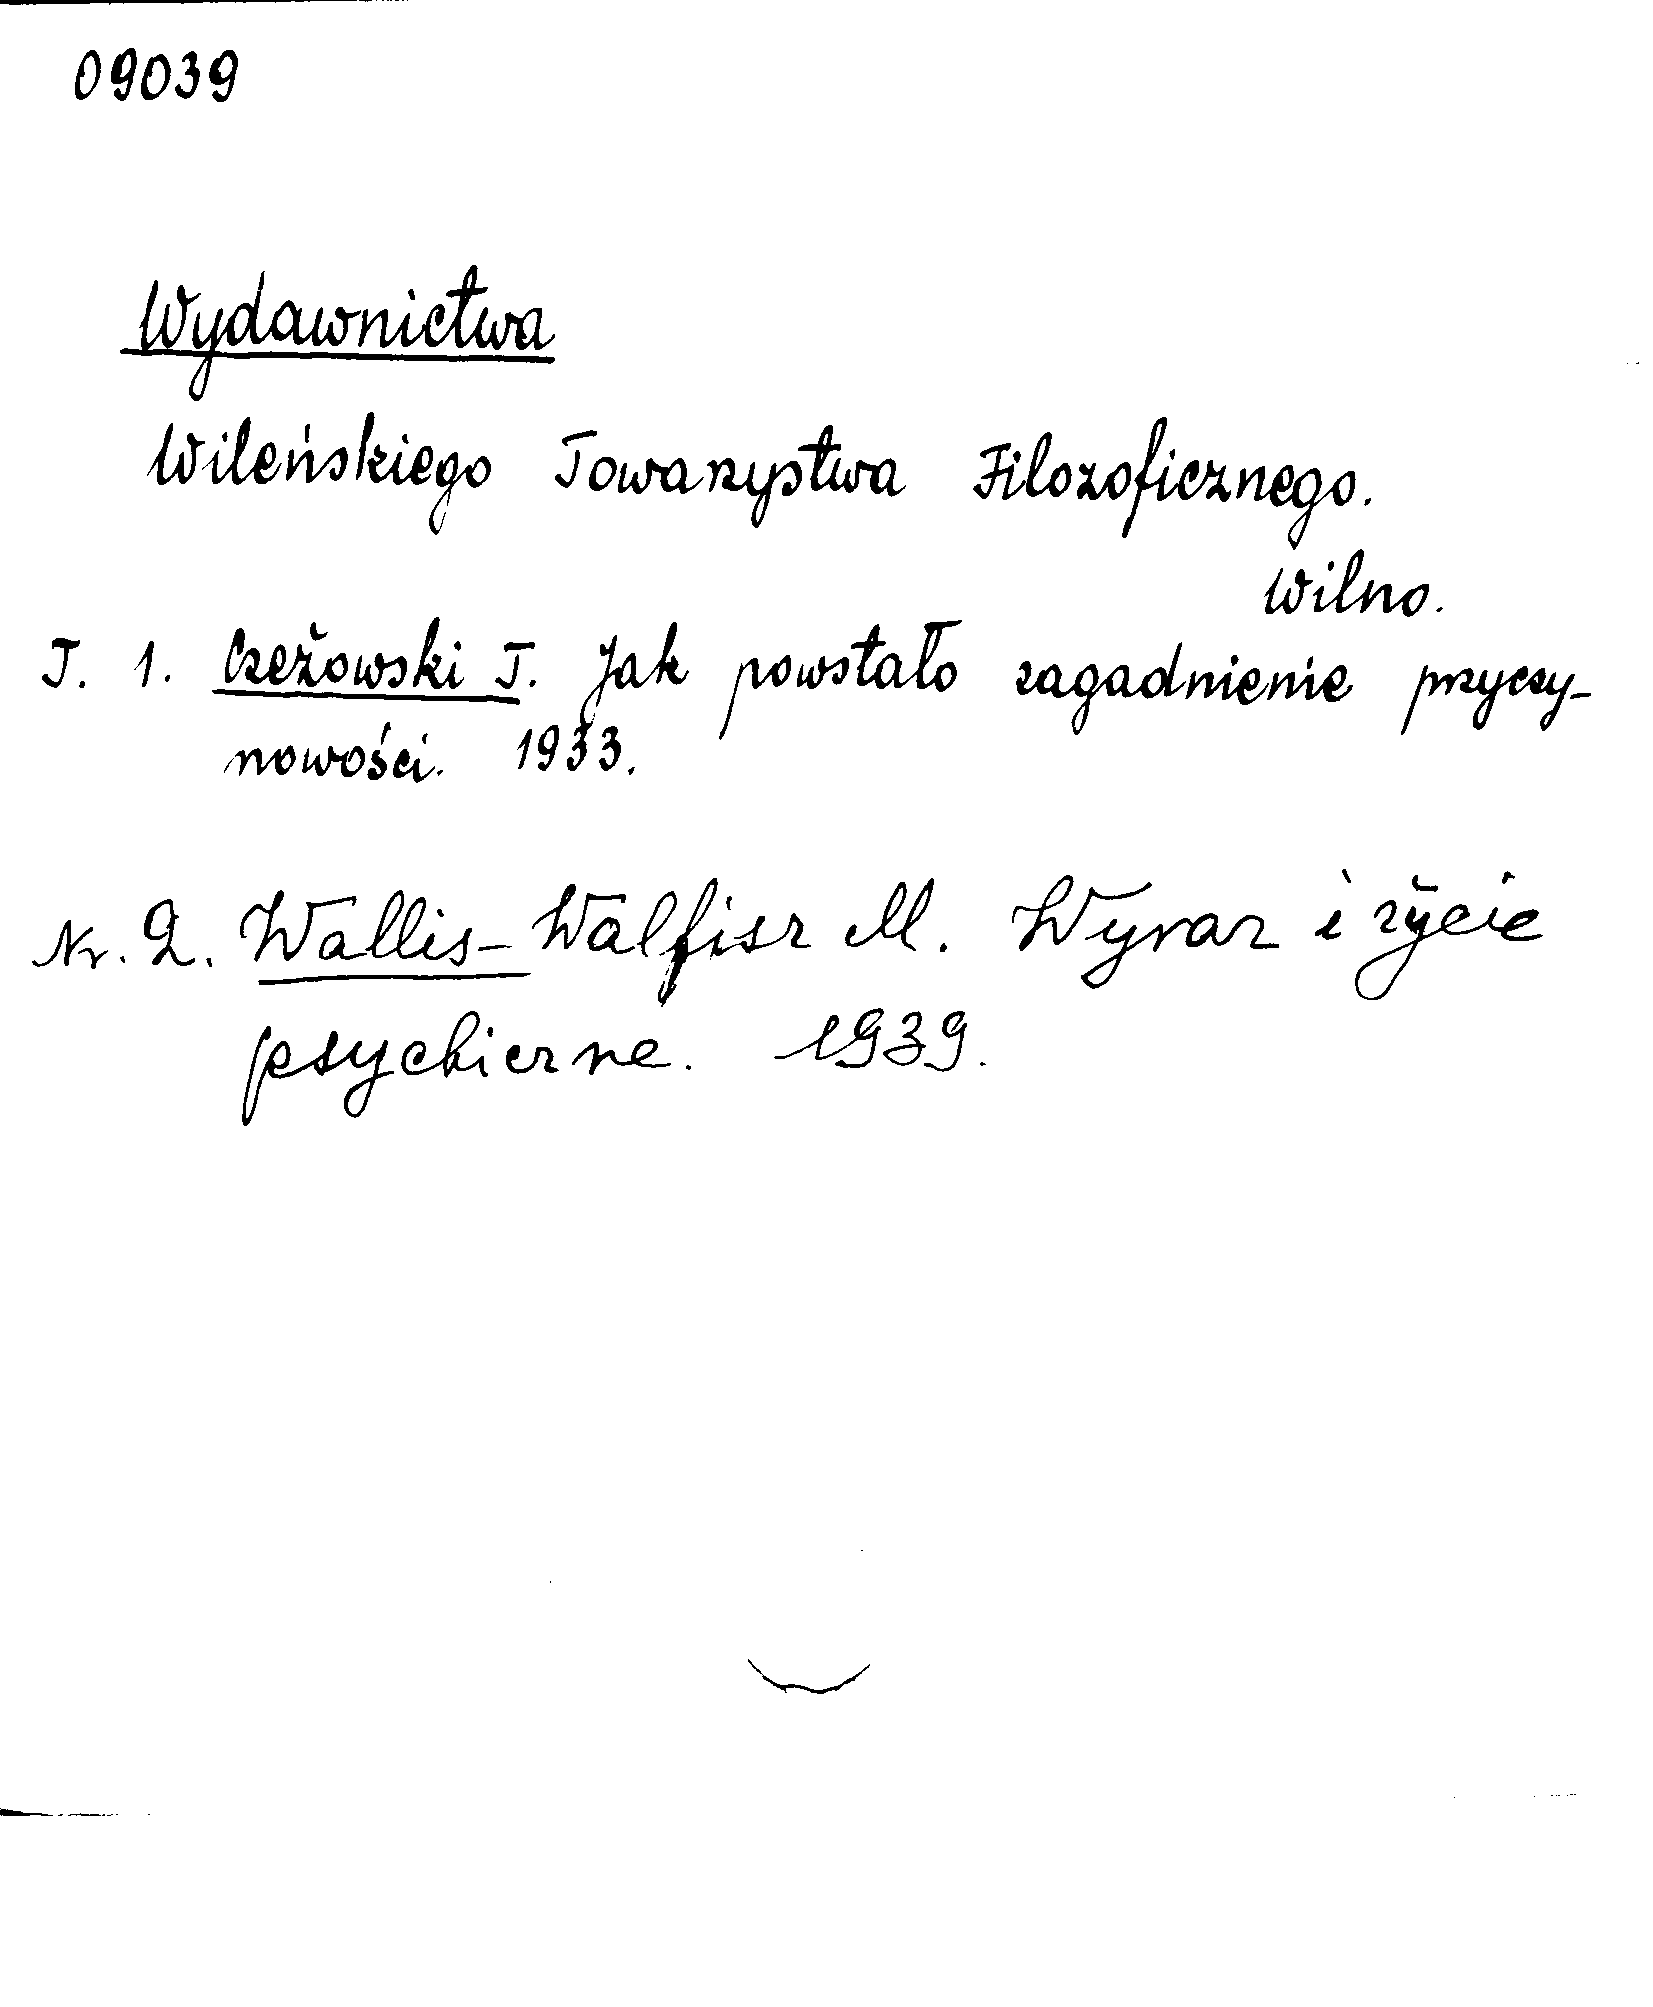 09039
Wydawnictwa
Wileńskiego Towarzystwa Filozoficznego.
Wilno.
T. 1. Czeżowski T. Jak powstało zagadnienie przyczy-
nowości. 1933.
Nr. 2. Wallis-Walfisz M. Wyraz i życie
psychiczne. 1939.